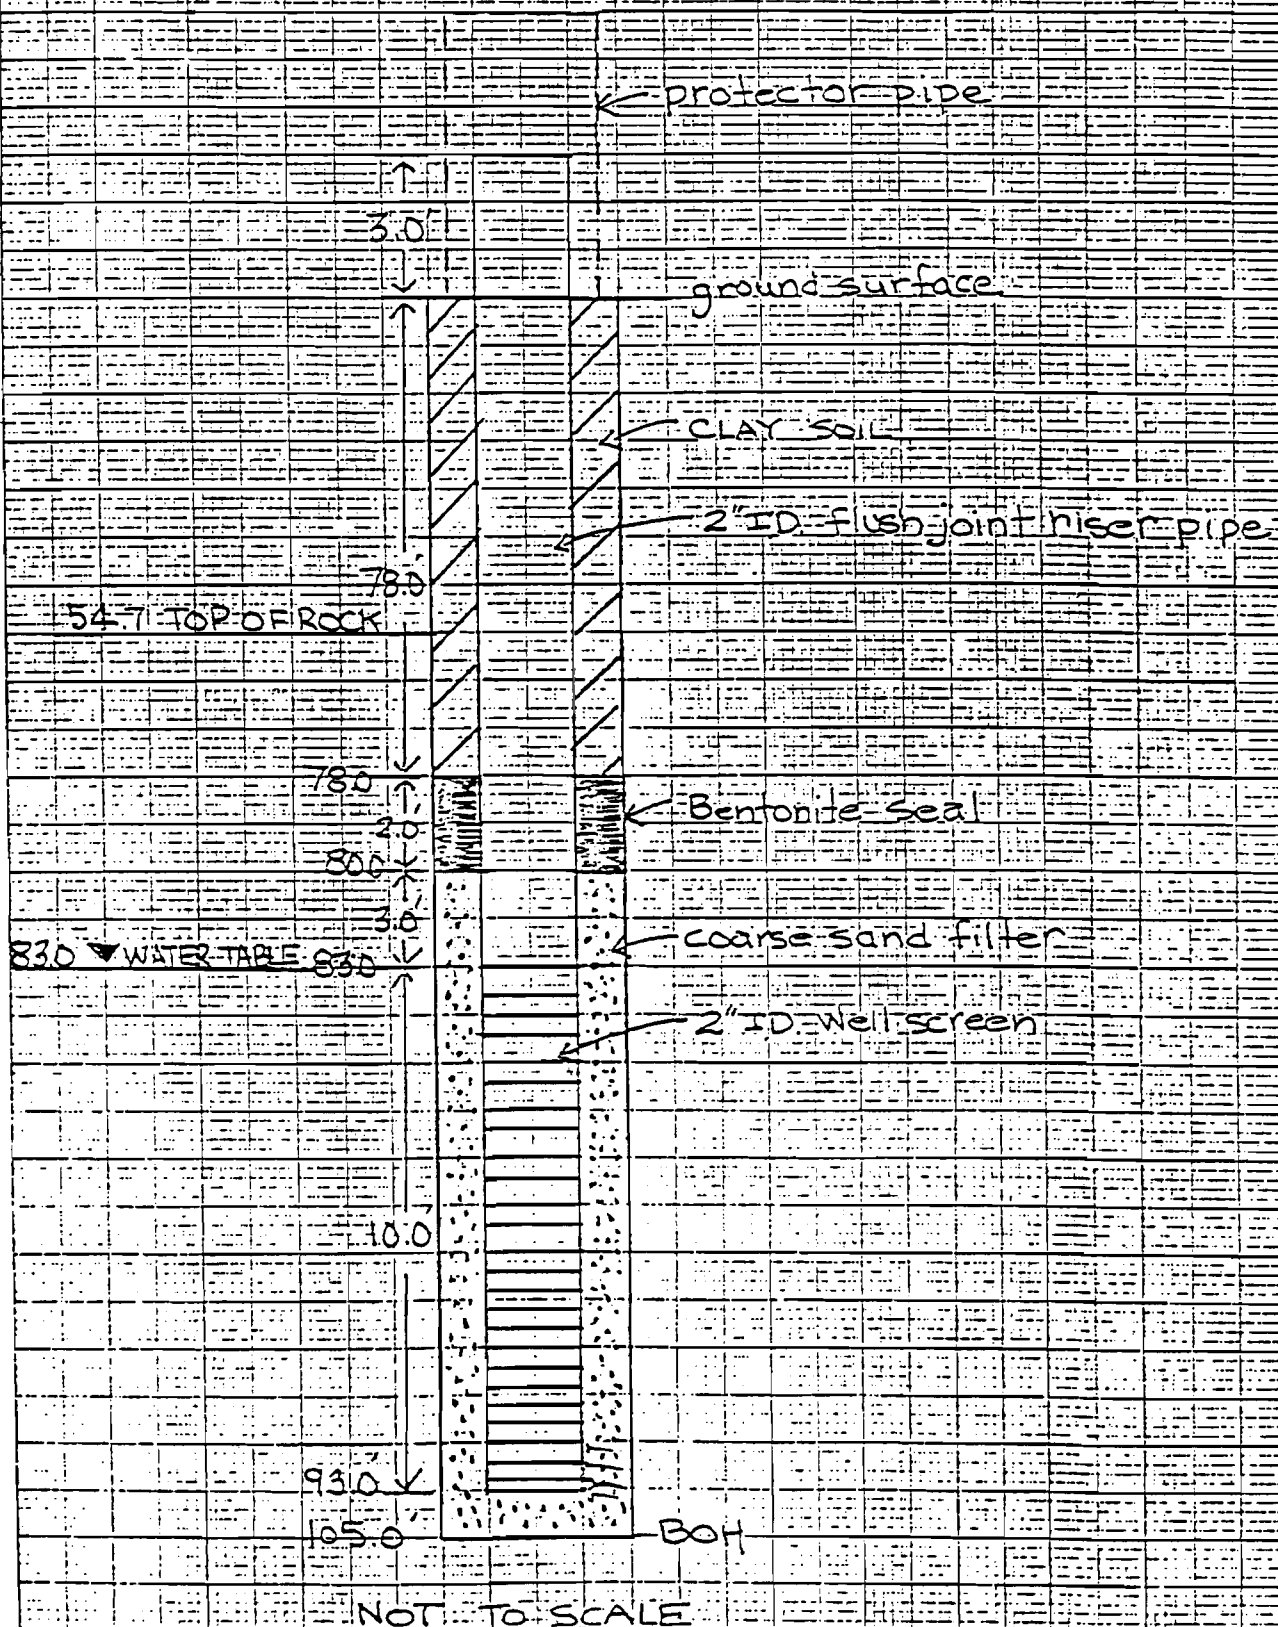 protector pipe
3.0'
ground surface
CLAY SOIL
2" ID flush joint riser pipe
78.0'
54.7 TOP OF ROCK
78.0
2.0'
Bentonite Seal
80.0
3.0'
coarse sand filter
83.0 ▼ WATER TABLE 83.0
2" ID Well screen
10.0'
93.0'
105.0'
BOH
NOT TO SCALE